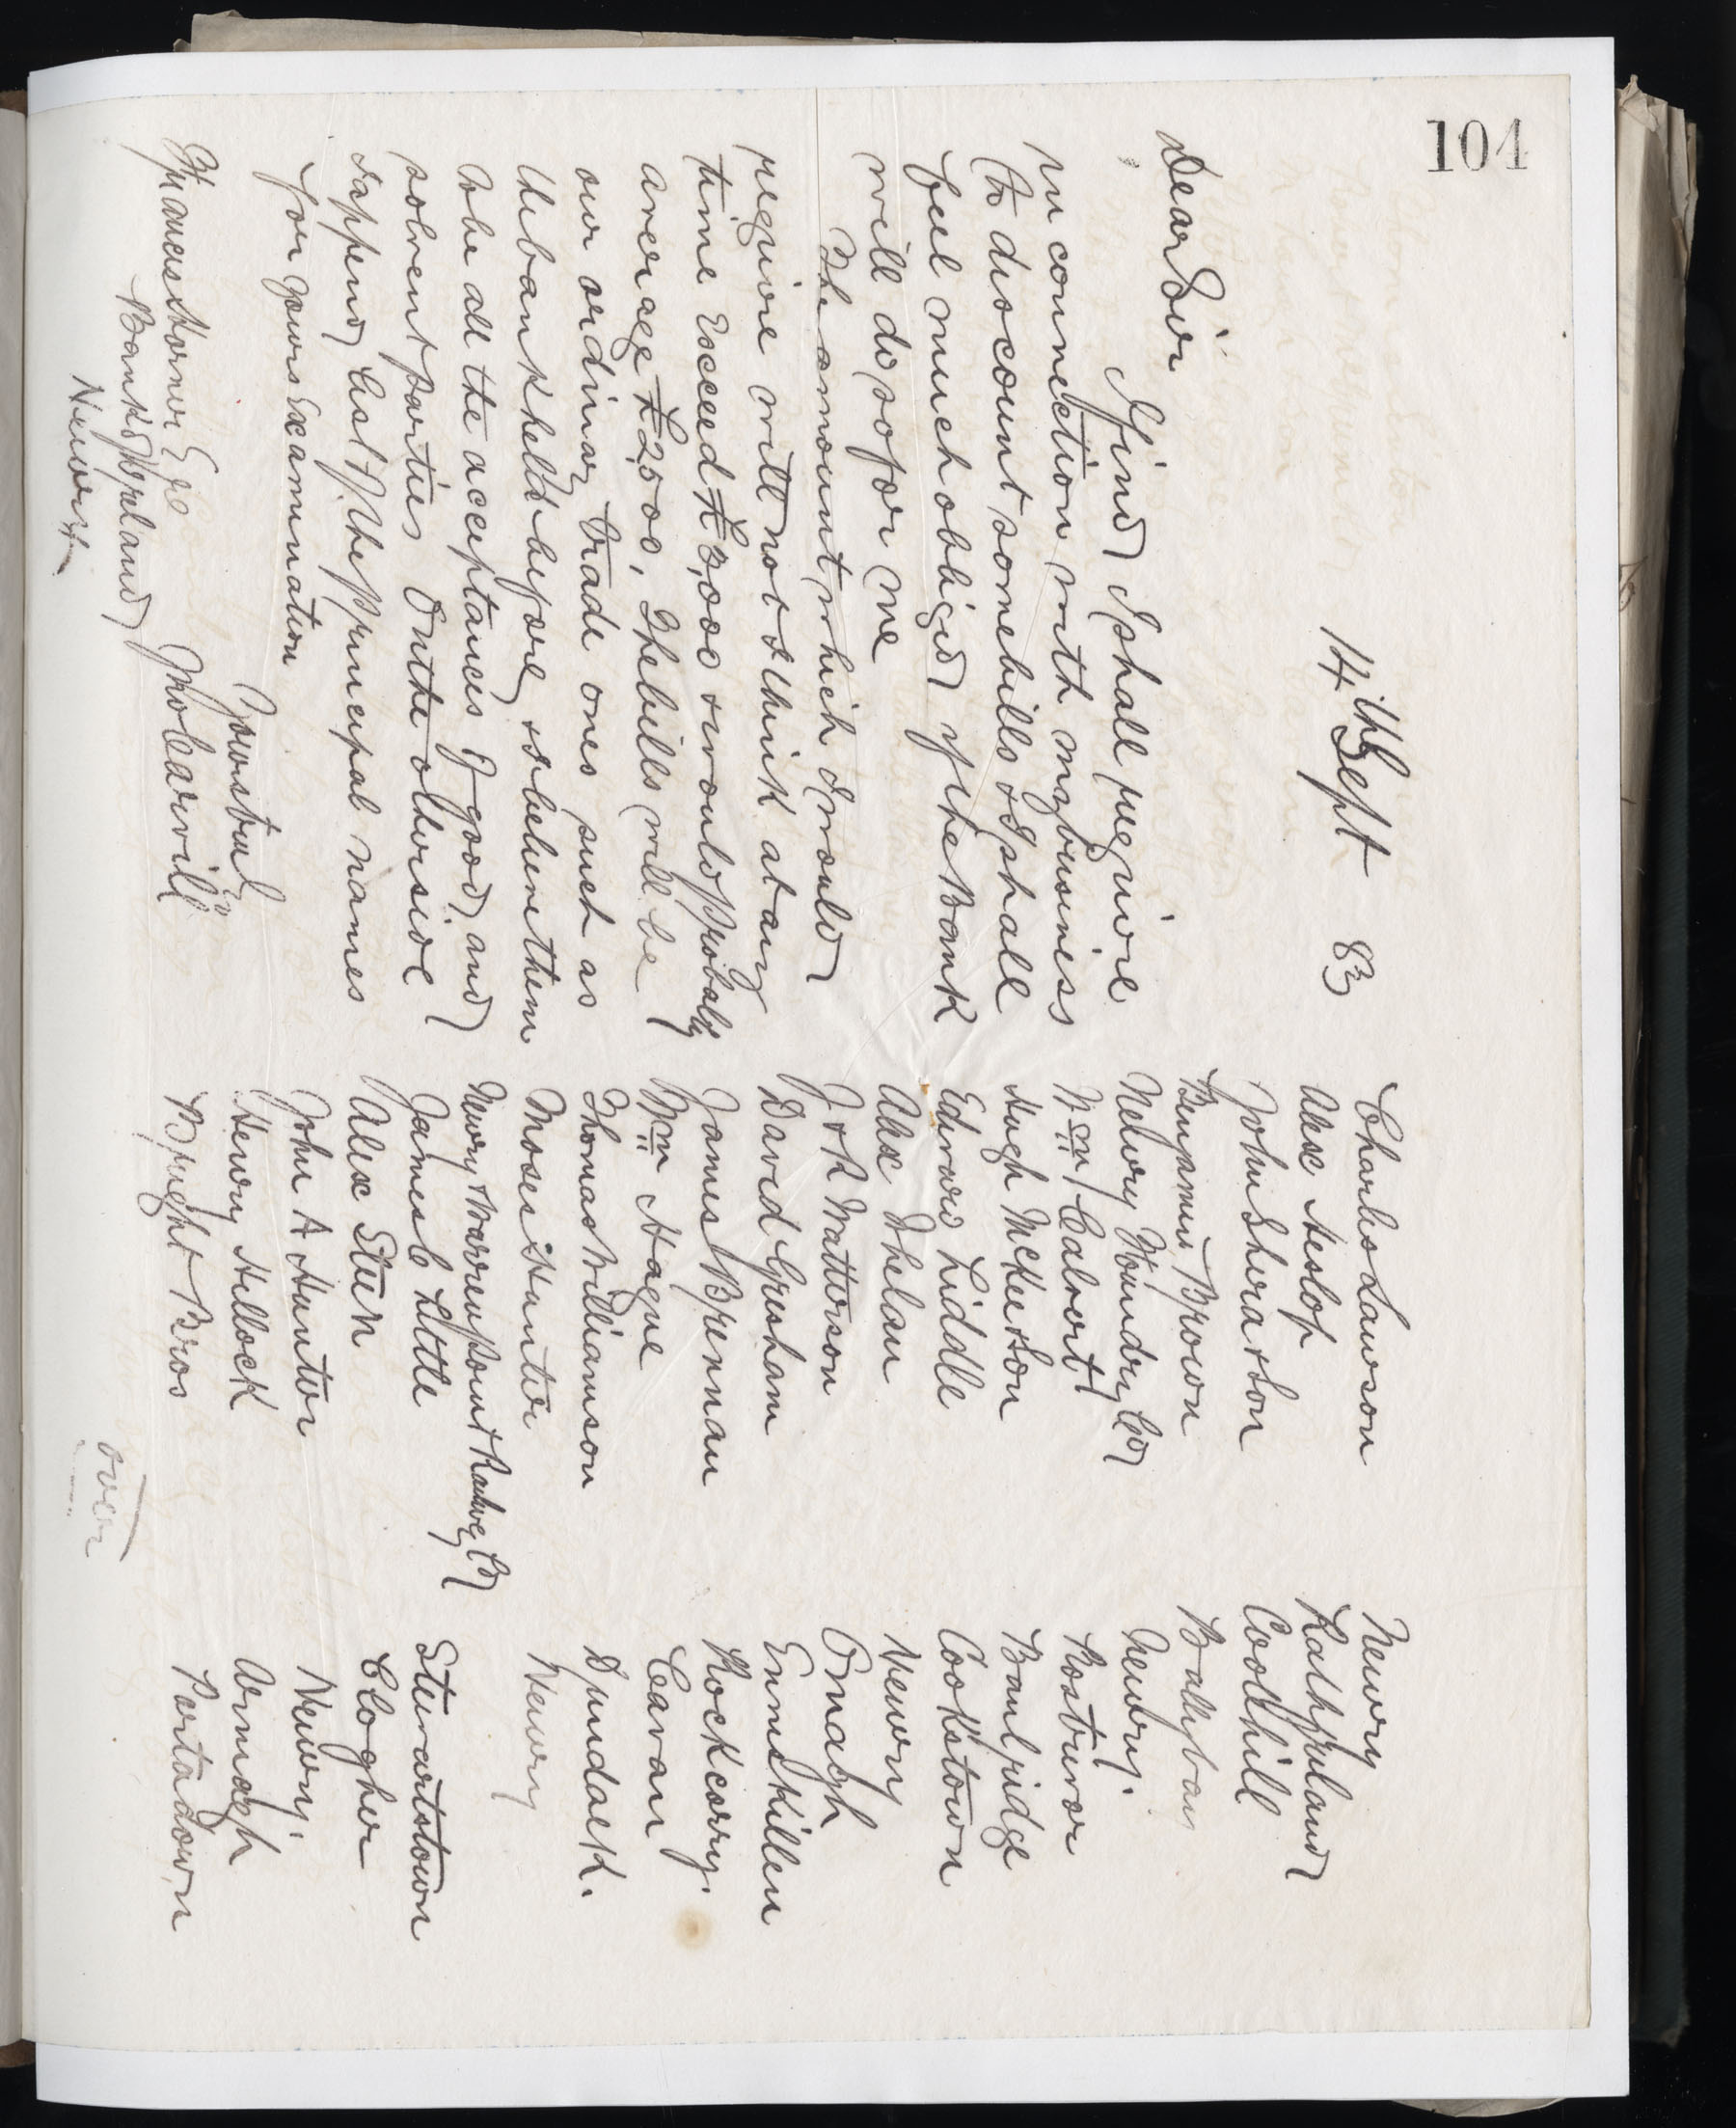 104
14th Sept 83
Dear Sir
I find I shall require
in connection with my business
to discount some bills & I shall
feel much obliged if the Bank
will do so for me
The amount which I would
require will not I think at any
time Exceed £3,000 & would probably
average £2,500, The bills will be
our ordinary trade ones such as
the bank held before & I believe them
to be all the acceptances of good and
solvent parties On the other side
I append list of the principal names
for your Examination
Yours truly
Francis Horner Esqe
Bank of Ireland
Newry
Charles Lawson Newry
Alex Heslop Rathfriland
John Sheira & Son Coothill
Benjamin Brown Ballybay
Newry Foundry Co Newry.
Wm Calvert Rostrevor
Hugh McKee & Son Banbridge
Edward Liddle Cookstown
Alex Whelan Newry
J & R Watterson Omagh
David Gresham Enniskillen
James Brennan Rockcorry.
Wm Hague Cavan
Thomas Williamson Dundalk.
Moses Hunter Newry
Newry & Warrenpoint Railway Co
James C Little Stewartstown
Alex Steen Clogher
John A Hunter Newry.
Henry Hillock Armagh
Bright Bros Portadown
over